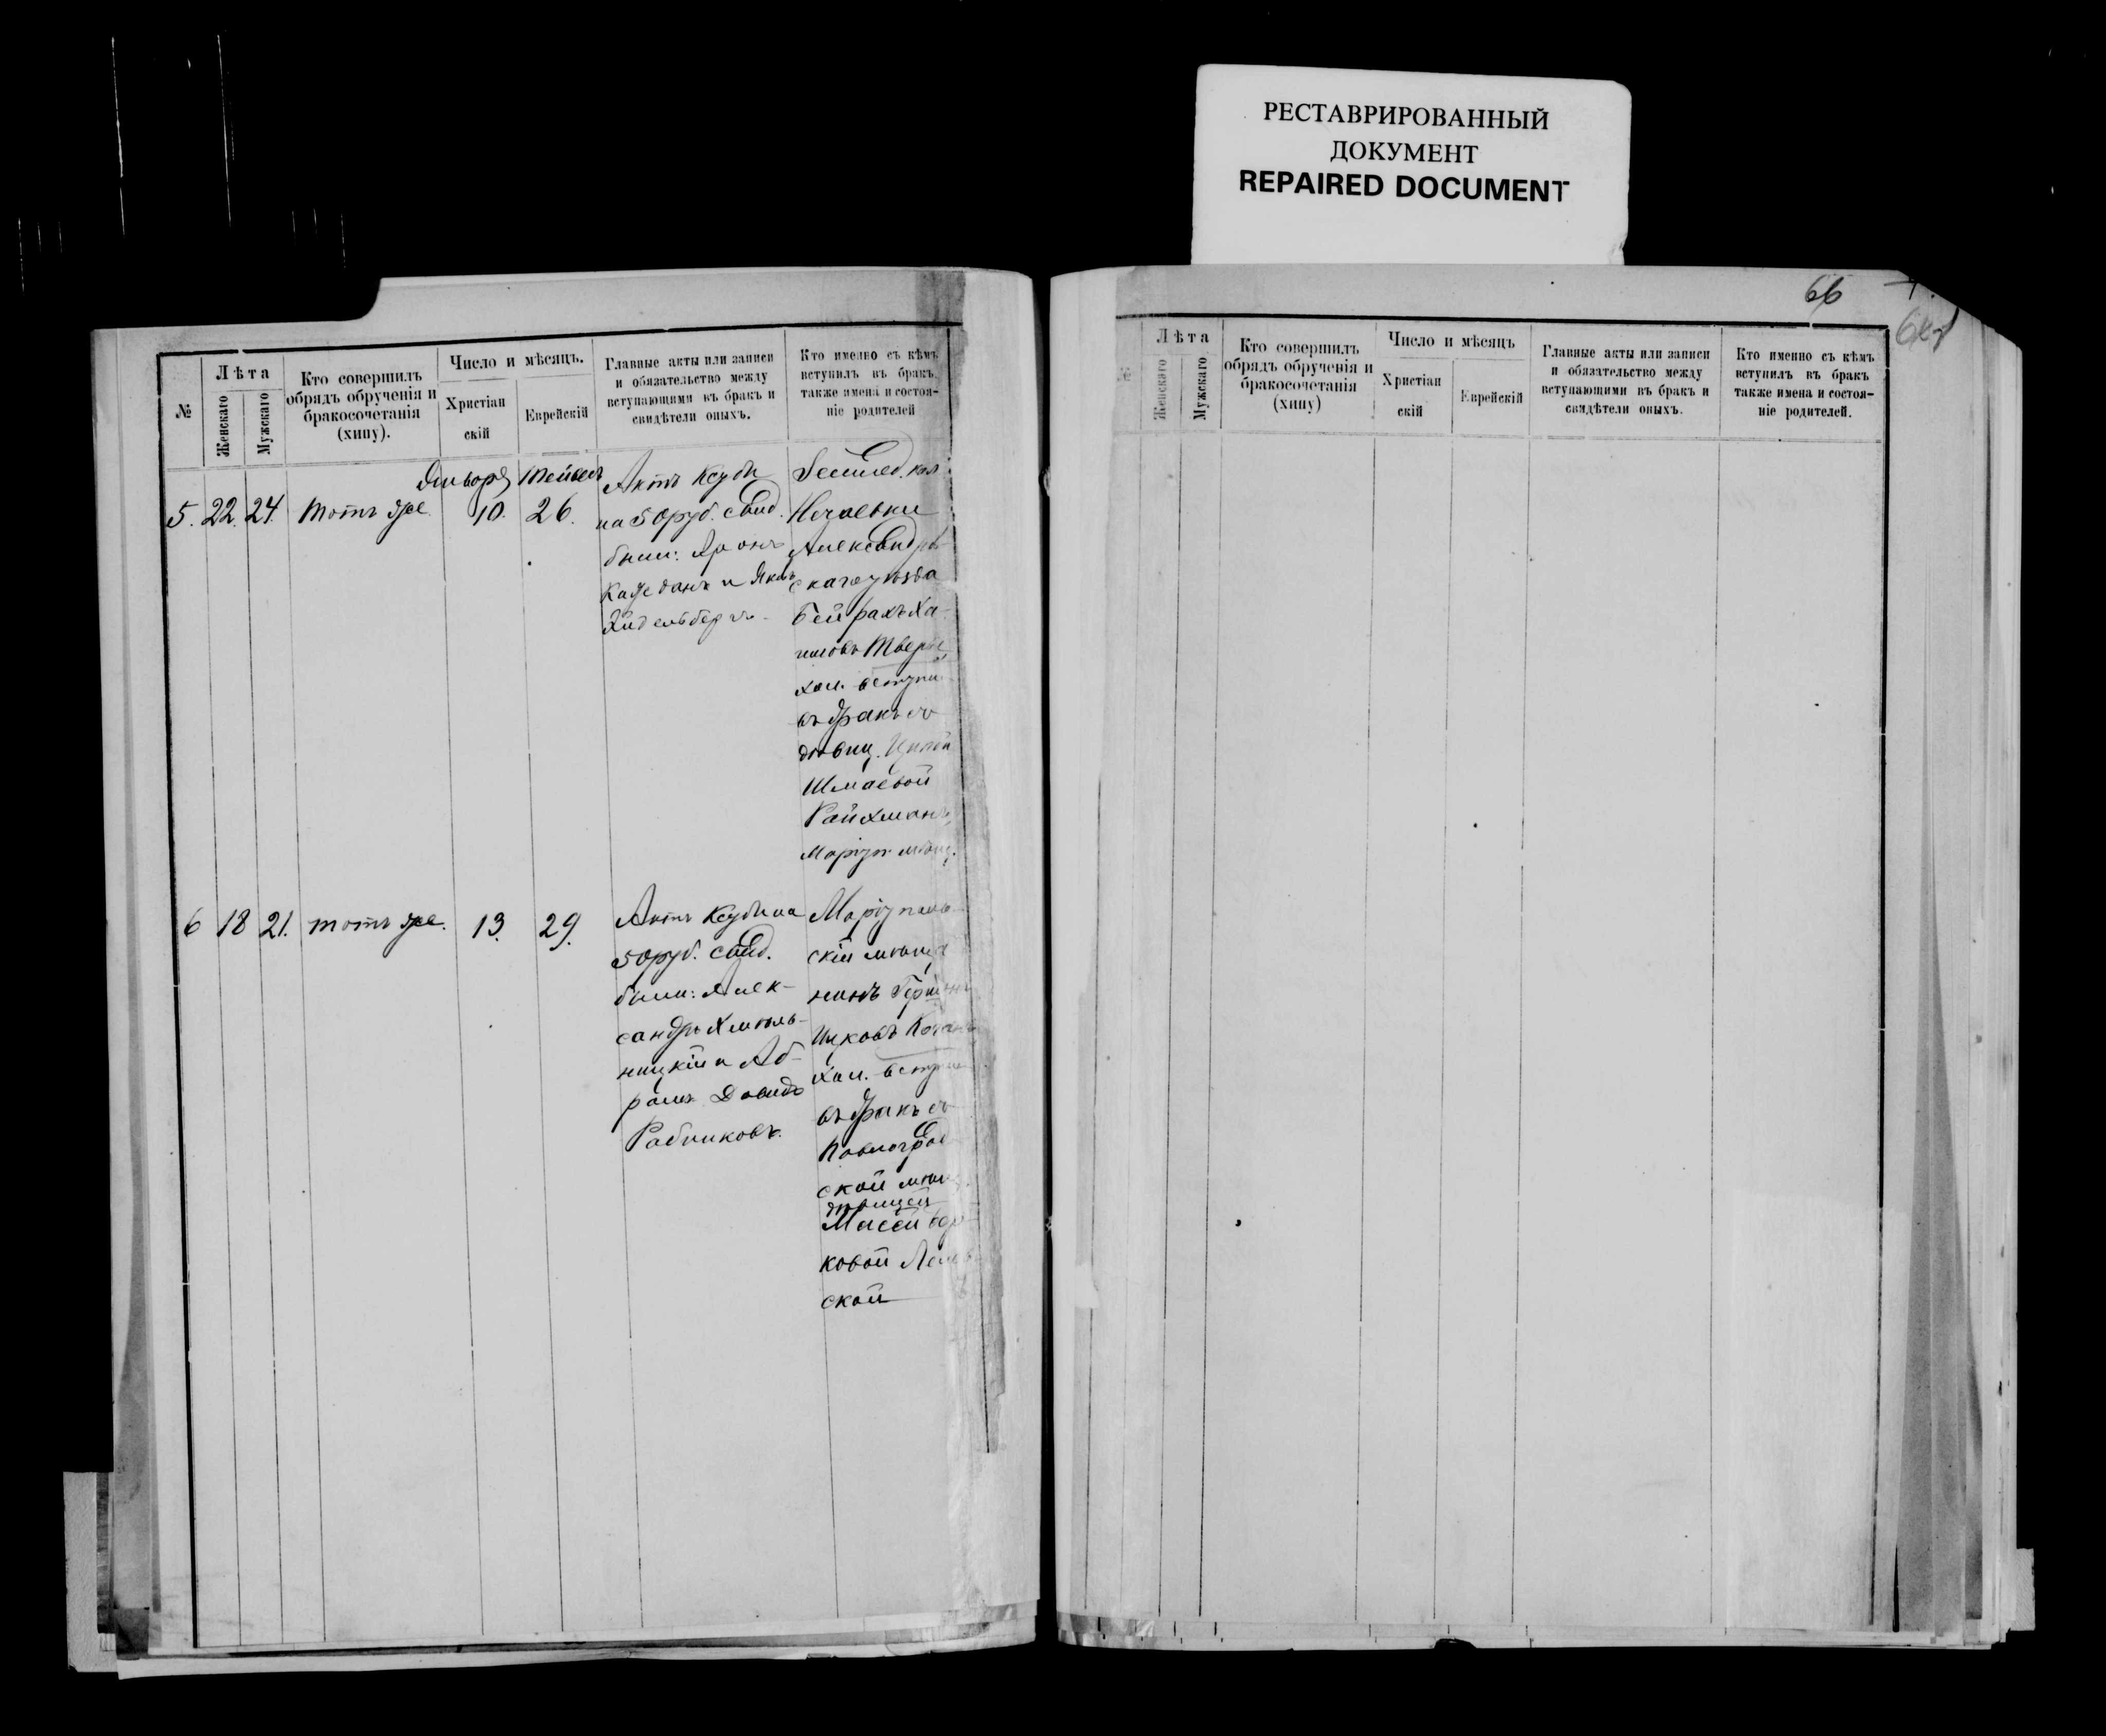 РЕСТАВРИРОВАННЫЙ
ДОКУМЕНТ
REPAIRED DOCUMENT
66
№
Лѣта
Женскаго
Мужскаго
Кто совершилъ
обрядъ обрученія и
бракосочетанія
(хипу).
Число и мѣсяцъ.
Христіан
скій
Еврейскій
Главные акты или записи
и обязательство между
вступающими въ бракъ и
свидѣтели оныхъ.
Кто именно съ кѣмъ
вступилъ въ бракъ,
также имена и состоя-
ніе родителей
5. 22. 24. тотъ же
Января
10.
Тейвесъ
26.
Актъ Ксуби
на 50 руб. Свид.
были: Аронъ
и Яковъ
Эйдельбергъ.
Землед. кол.
Нечаевки
Александров-
скаго уѣзда
Бейрахъ Ха-
имовъ
хол. вступи
въ бракъ съ
дѣвиц.
Шмаевой
Райхманъ,
Маріуп. мѣщ.
6 18 21. тотъ же. 13. 29.
Актъ Ксуби на
50 руб. Свид.
были: Алек-
сандръ Хмѣль-
ницкій и Аб-
рамъ Давидъ
Рабиковъ.
Маріуполь-
скій мѣща
нинъ
Ицковъ
хол. вступи
въ бракъ съ
Павлоград
ской мѣщ.
дѣвицей
ковой
ской
№
Лѣта
Женскаго
Мужскаго
Кто совершилъ
обрядъ обрученія и
бракосочетанія
(хипу)
Число и мѣсяцъ
Христіан
скій
Еврейскій
Главные акты или записи
и обязательство между
вступающими въ бракъ и
свидѣтели оныхъ.
Кто именно съ кѣмъ
вступилъ въ бракъ
также имена и состоя-
ніе родителей.